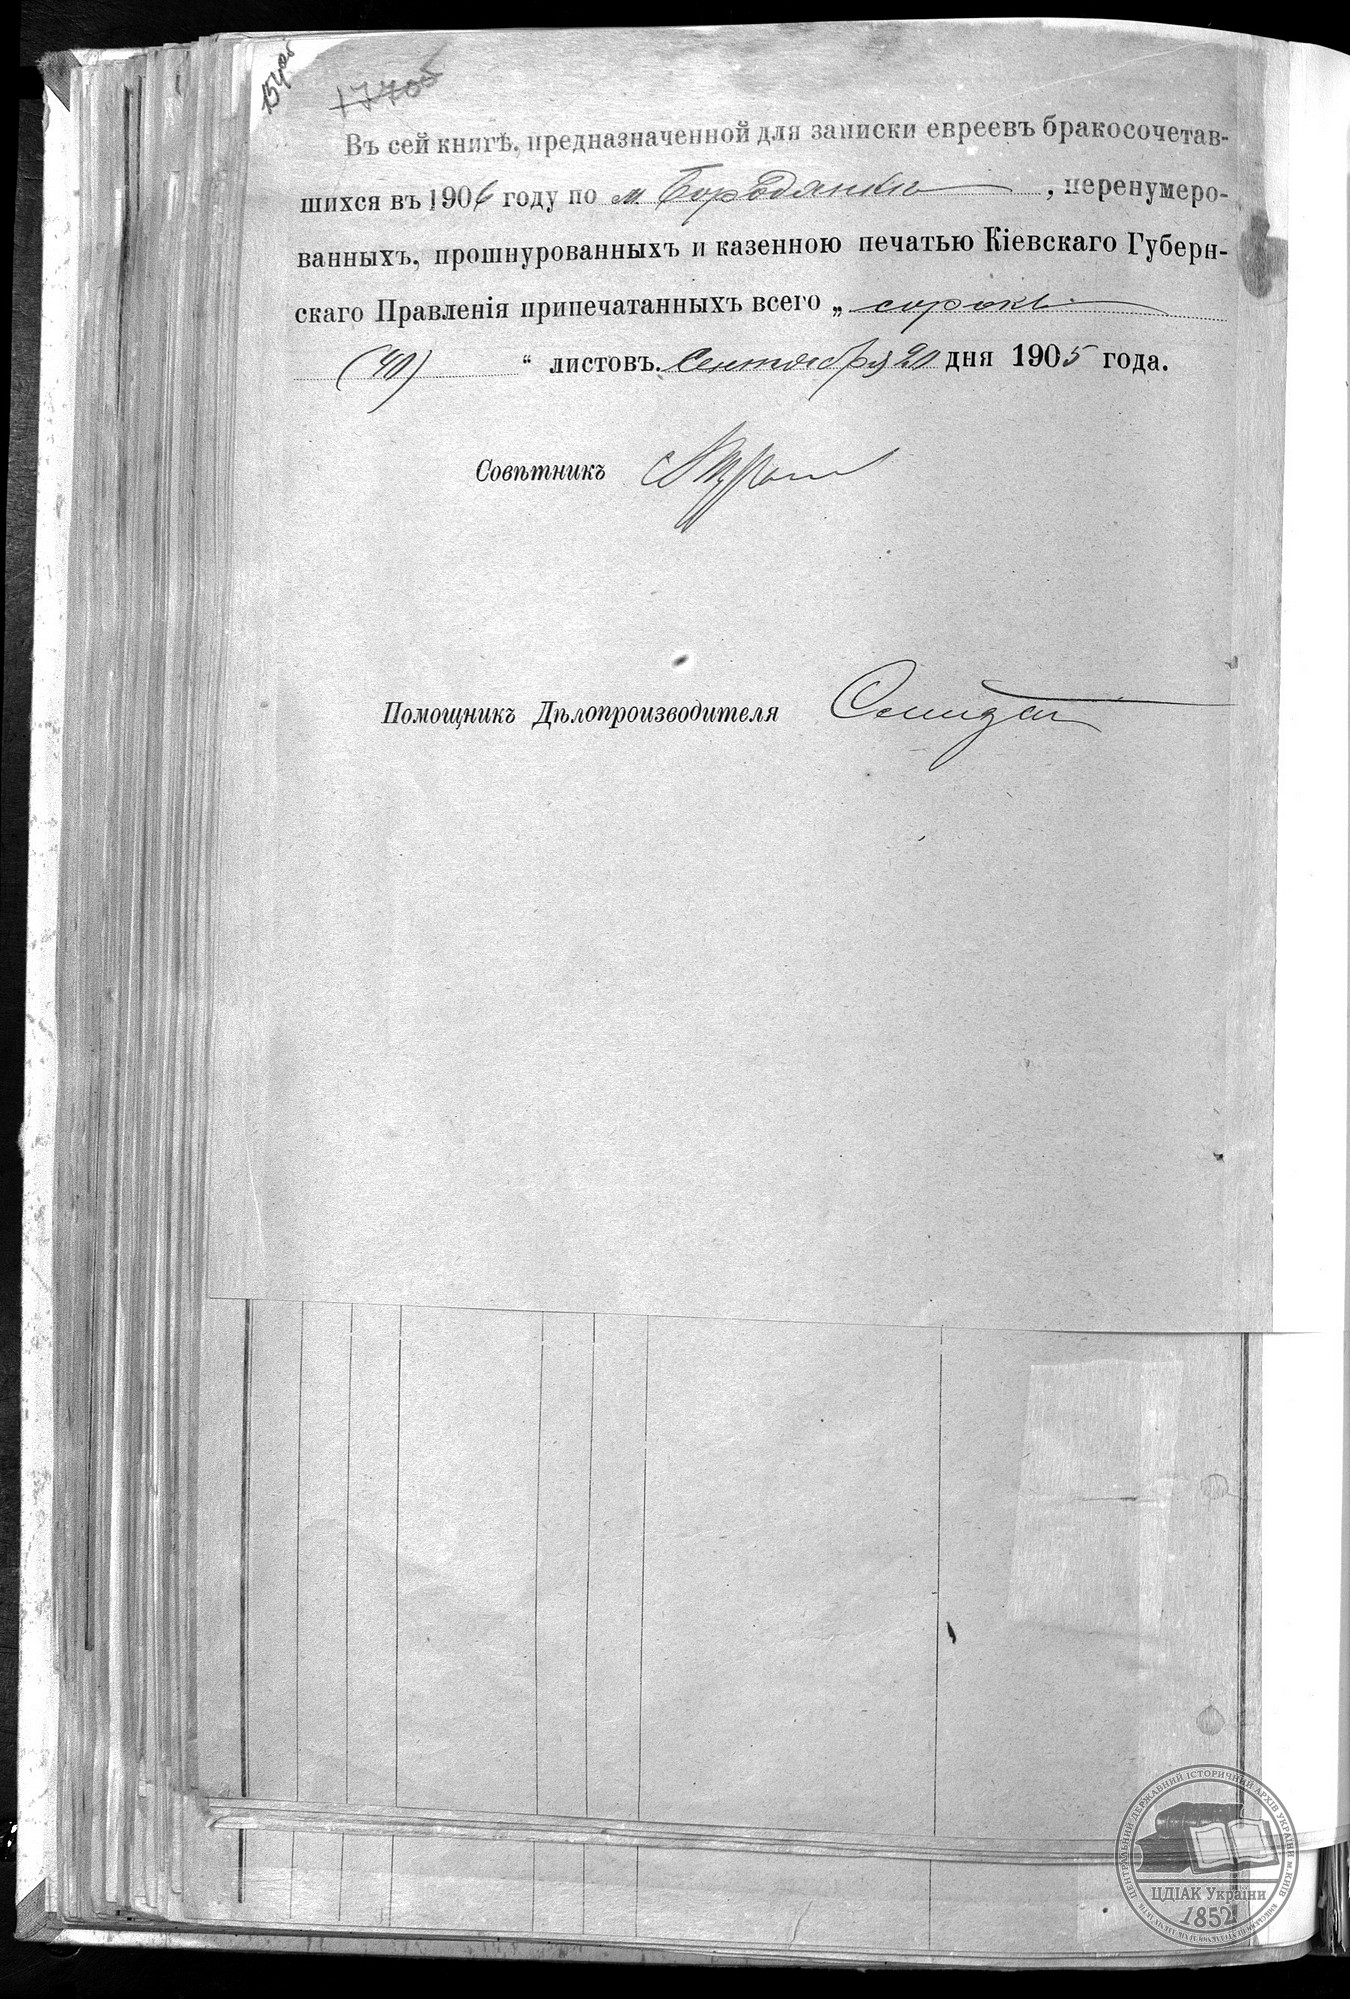 154об
177об
Въ сей книгѣ, предназначенной для записки евреевъ бракосочетав-
шихся въ 1906 году по м. Бородянкѣ, перенумеро-
ванныхъ, прошнурованныхъ и казенною печатью Кіевскаго Губерн-
скаго Правленія припечатанныхъ всего „ сорокъ
(40) “ листовъ. Сентября 20 дня 1905 года.
Совѣтникъ
Помощникъ Дѣлопроизводителя
ЦЕНТРАЛЬНИЙ ДЕРЖАВНИЙ ІСТОРИЧНИЙ АРХІВ УКРАЇНИ м. КИЇВ
ЦДІАК України
1852